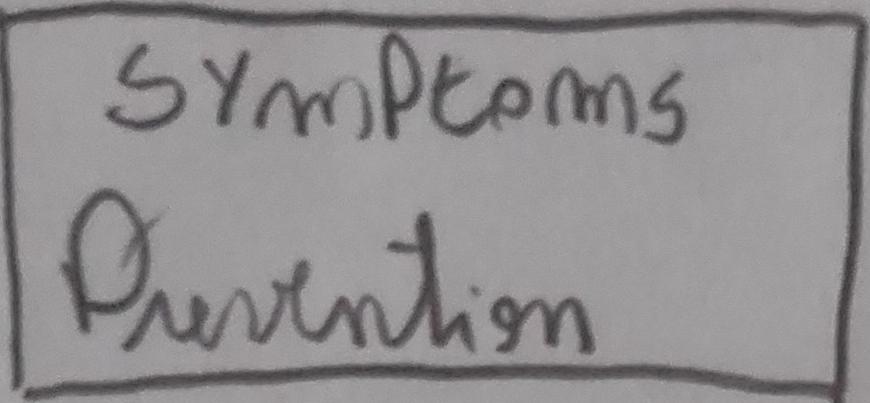 Symptoms
Prevention